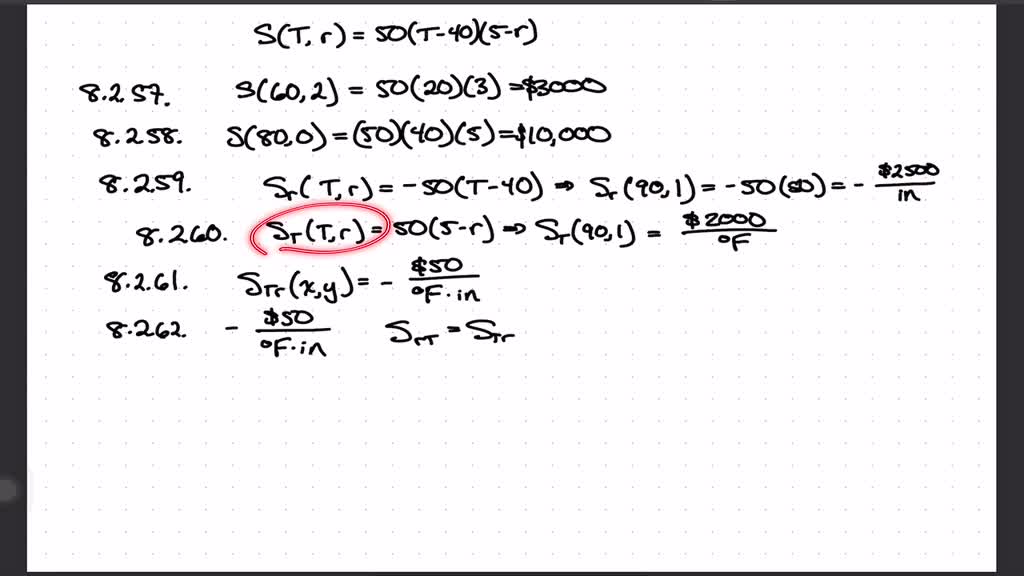 S(T, r) = 50(T-40)(5-r)
8.2.57. S(60,2) = 50(20)(3) = $3000
8.258. S(80,0) = (50)(40)(5) = $10,000
8.259. Sr(T,r) = -50(T-40) ⇒ Sr(90,1) = -50(50) = - $2500/in
8.260. ST(T,r) = 50(5-r) ⇒ ST(90,1) = $2000/°F
8.2.61. STr(x,y) = - $50/°F·in
8.262. - $50/°F·in SrT = STr